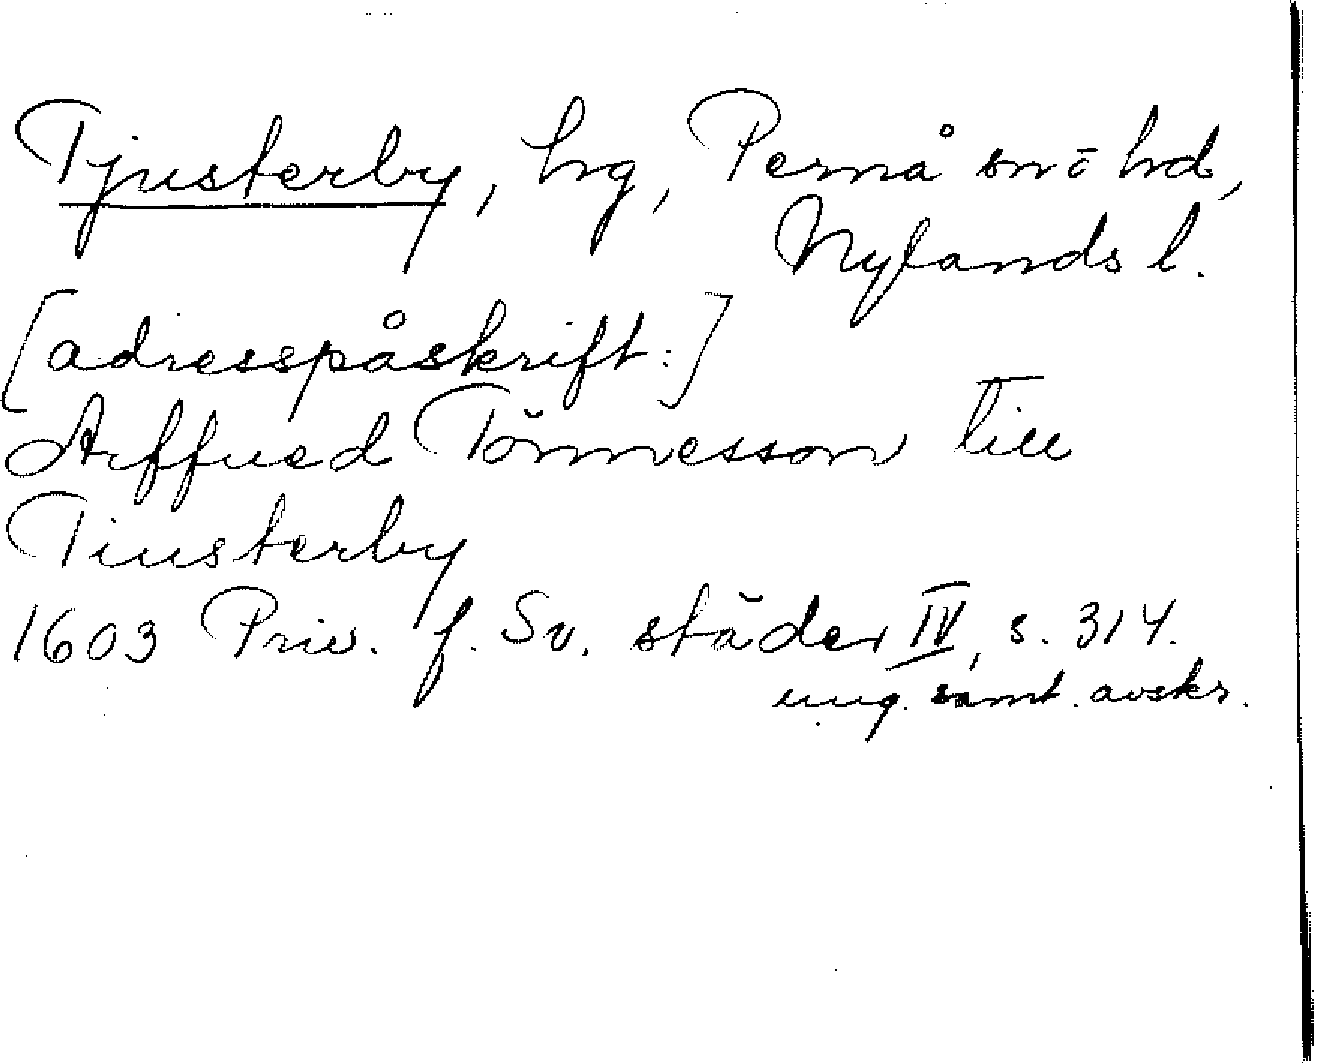 Tjusterby, hrg, Pernå sn o hd,
Nylands l.
[adresspåskrift:]
Arffued Tönnesson till
Tiusterby
1603 Priv. f. Sv. städer IV, s. 314.
ung. samt. avskr.